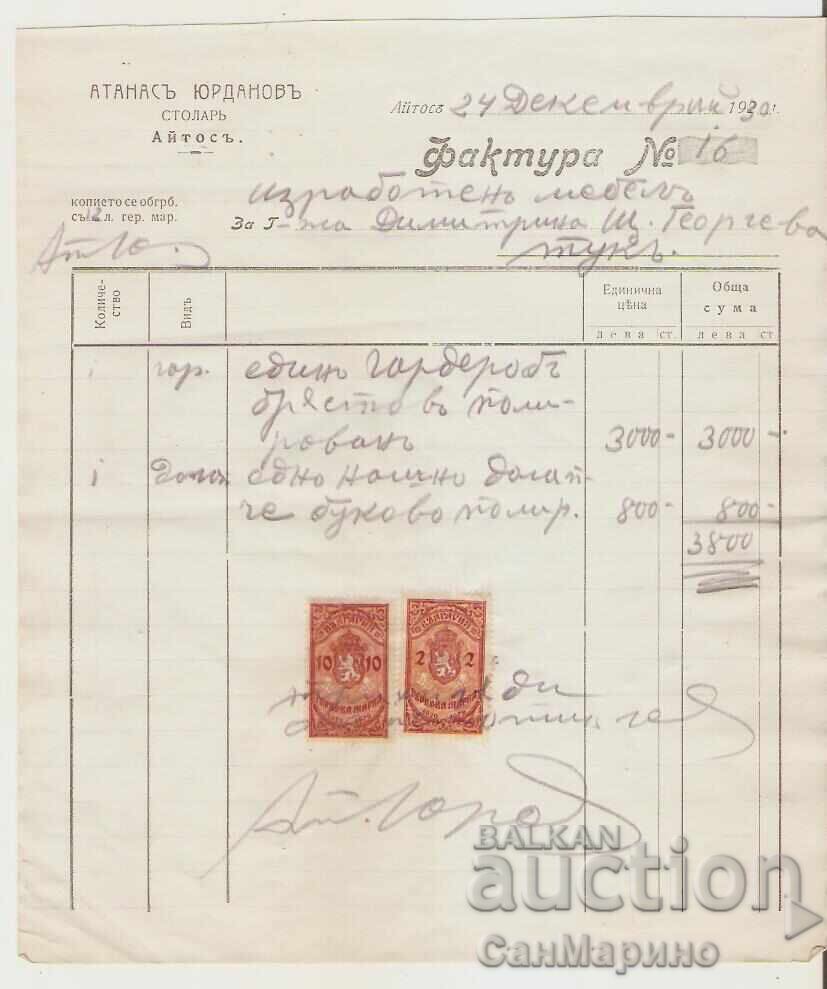 АТАНАСЪ ЮРДАНОВЪ
СТОЛАРЬ
Айтосъ.
Айтосъ 24 Декемврий 1930 г.
Фактура № 16
копието се обгрб.
съ 12 л. гер. мар.
изработенъ мебелъ
За Г-жа Димитрина Щ. Георгева
тукъ.
Количество
Видъ
Единична цѣна
Обща сума
лева ст.
лева ст
1 гар. единъ гардеробъ
брястовъ поли-
рованъ 3000- 3000-
1 Долап едно нощно долап-
че буково полир. 800- 800-
3800
БЪЛГАРИЯ
10 10
БЪЛГАРИЯ
2 2
ГЕРБОВА МАРКА
ГЕРБОВА МАРКА
Ат. Юрд
BALKAN
auction
СанМарино